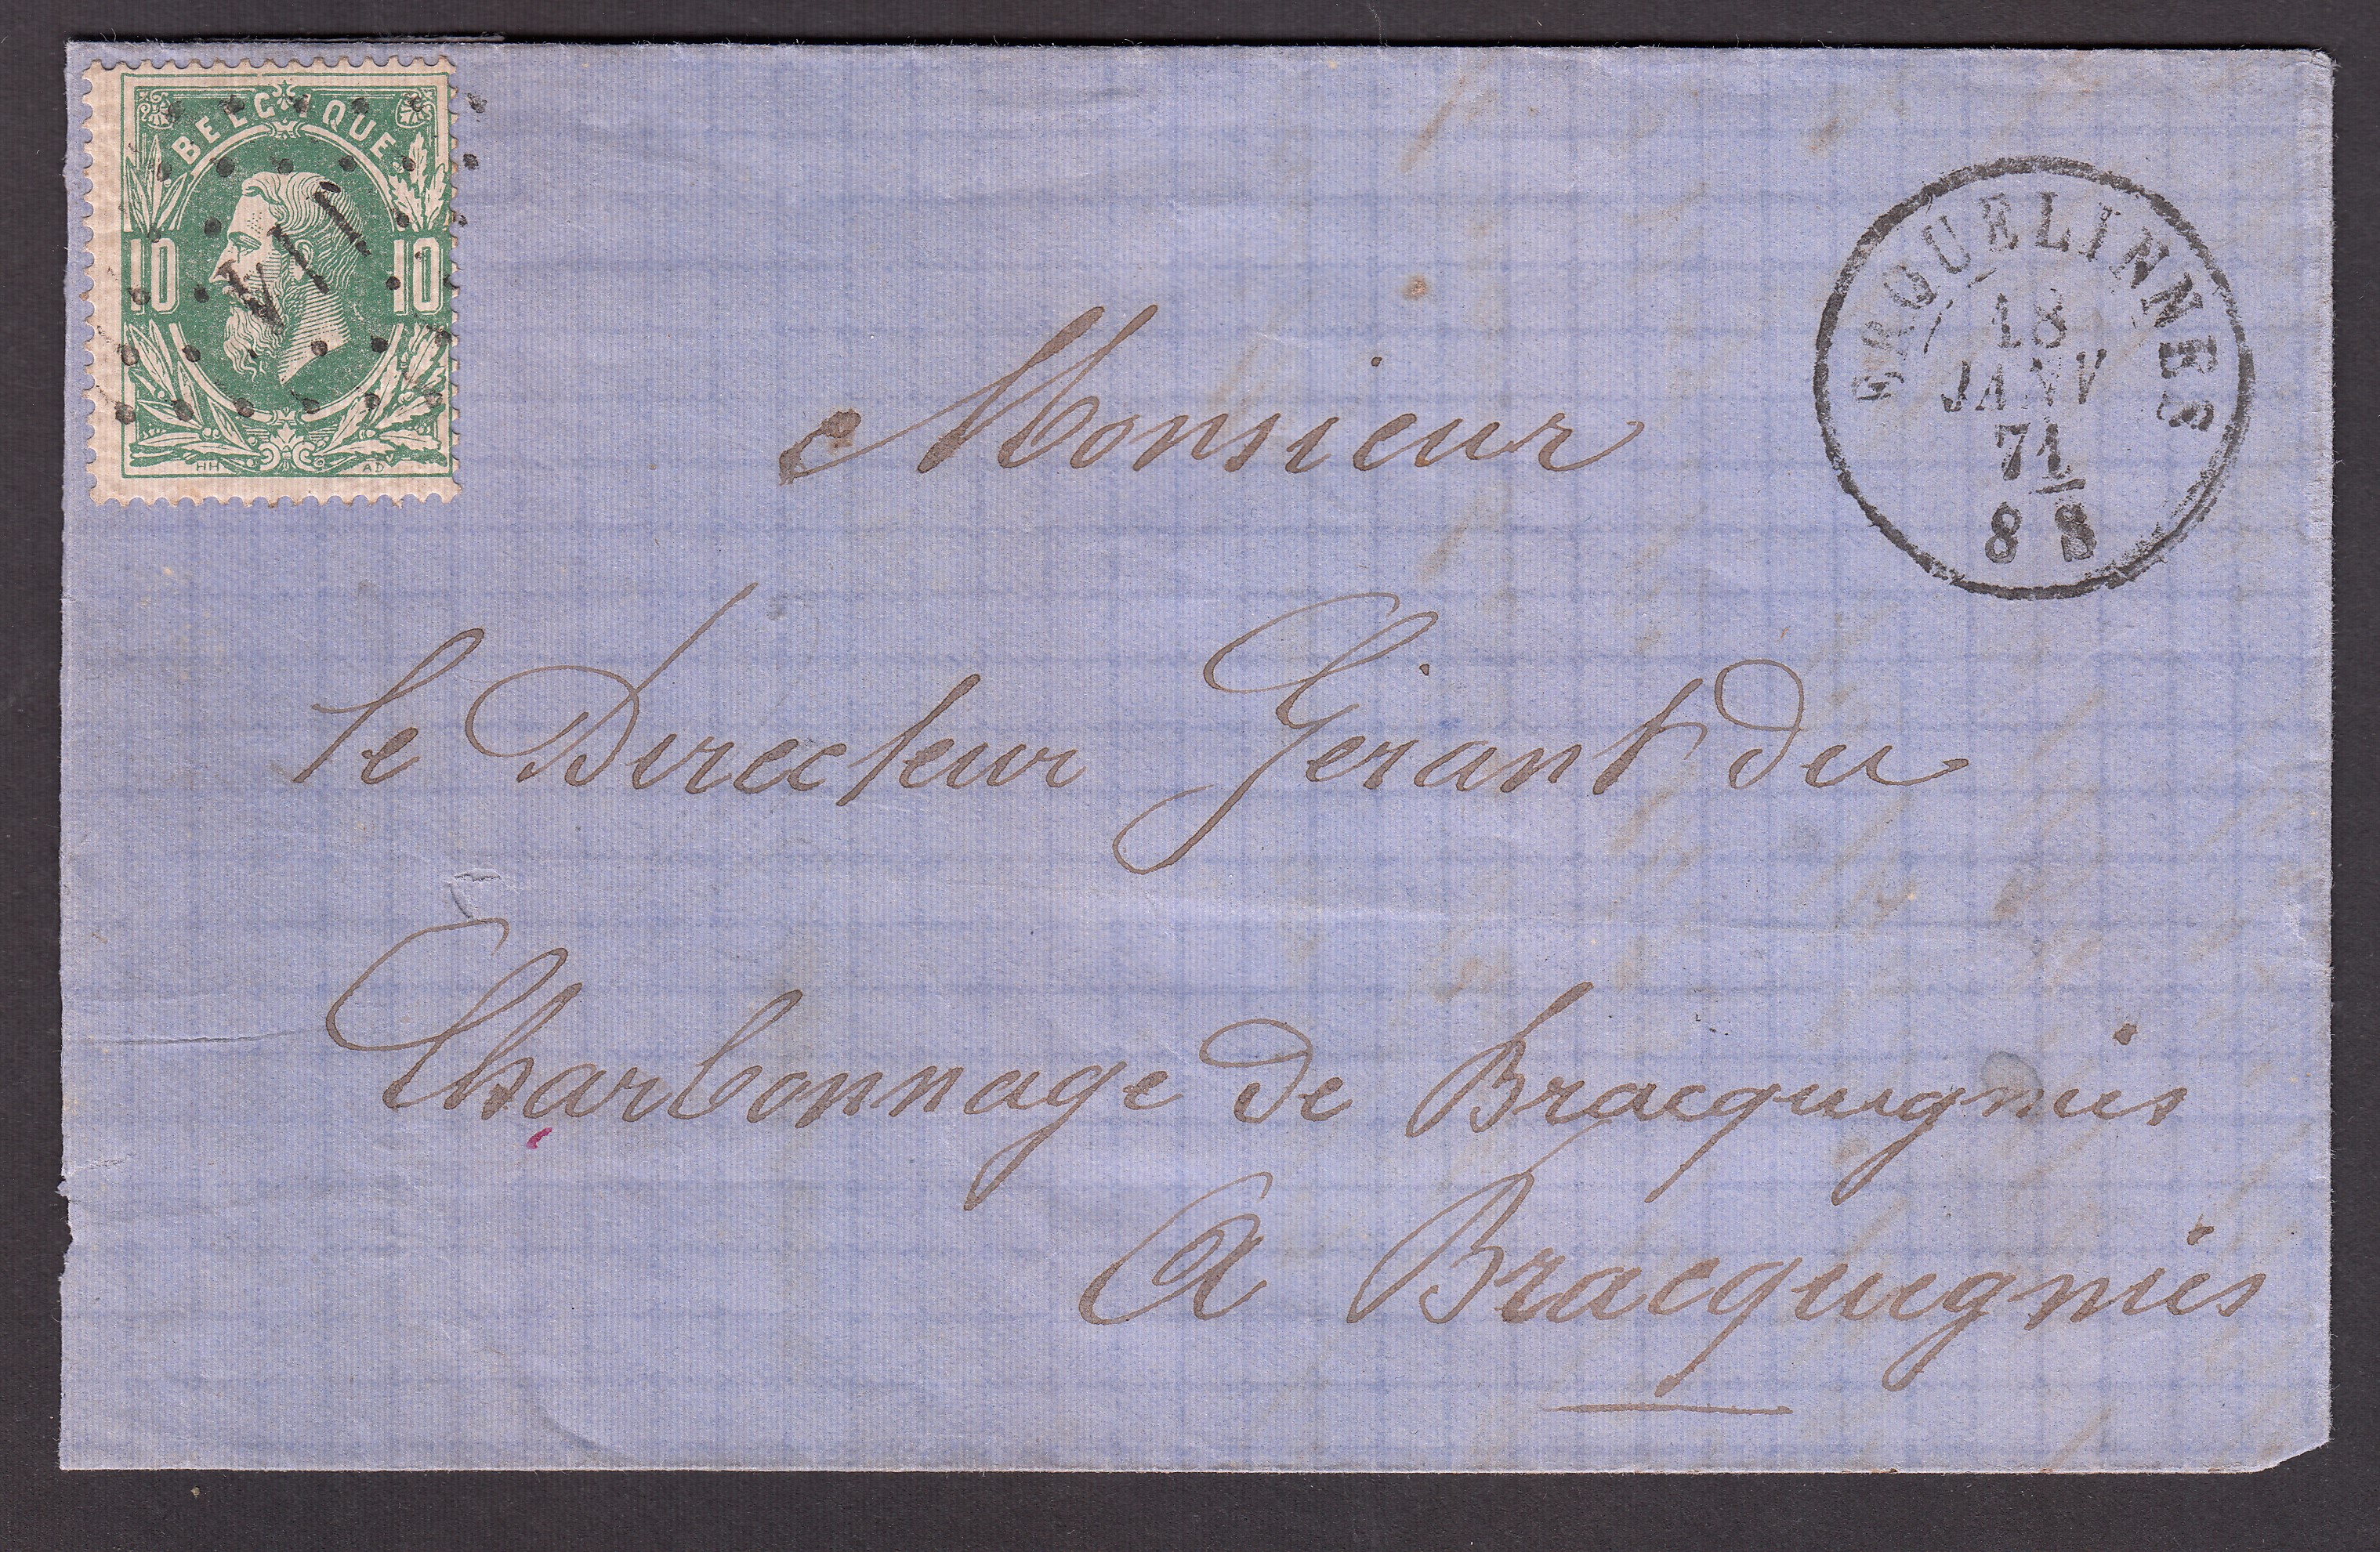 BELGIQUE
10 10
HH AD
ERQUELINNES
18
JANV
71
8 S
Monsieur
le Directeur Gérant du
Charbonnage de Bracquignies
A Bracquignies